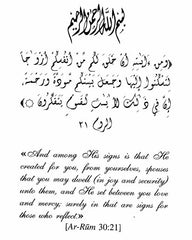 بسم الله الرحمن الرحيم
﴿وَمِنْ ءَايَٰتِهِۦٓ أَنْ خَلَقَ لَكُم مِّنْ أَنفُسِكُمْ أَزْوَٰجًا
لِّتَسْكُنُوٓا۟ إِلَيْهَا وَجَعَلَ بَيْنَكُم مَّوَدَّةً وَرَحْمَةً
إِنَّ فِى ذَٰلِكَ لَءَايَٰتٍ لِّقَوْمٍ يَتَفَكَّرُونَ﴾
الروم ٢١
«And among His signs is that He
created for you, from yourselves, spouses
that you may dwell (in joy and security)
unto them, and He set between you love
and mercy; surely in that are signs for
those who reflect»
[Ar-Rūm 30:21]